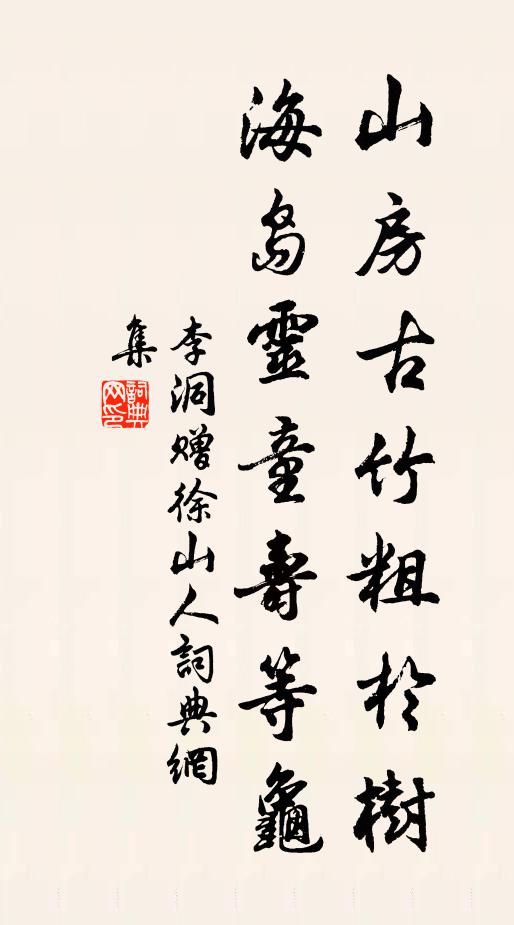 山房古竹粗於樹
海島靈童壽等龜
李洞贈徐山人詞典網
集
詞典網印